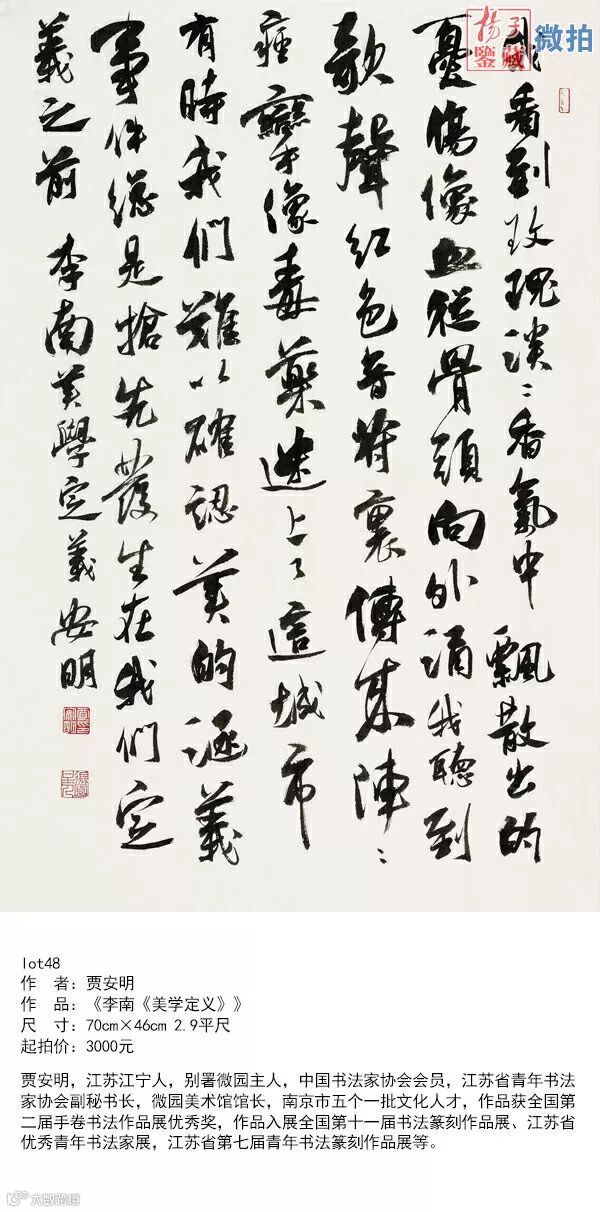 我看到玫瑰淡淡香氣中飄散出的
憂傷像血從骨頭向外涌我聽到
歌聲紅色音符裏傳來陣陣
痙攣像毒藥迷上了這城市
有時我們難以確認美的涵義
事件總是搶先發生在我們定
義之前 李南美學定義 安明
揚子
鑒藏
微拍
lot48
作 者：贾安明
作 品：《李南《美学定义》》
尺 寸：70cm×46cm 2.9平尺
起拍价：3000元
贾安明，江苏江宁人，别署微园主人，中国书法家协会会员，江苏省青年书法
家协会副秘书长，微园美术馆馆长，南京市五个一批文化人才，作品获全国第
二届手卷书法作品展优秀奖，作品入展全国第十一届书法篆刻作品展、江苏省
优秀青年书法家展，江苏省第七届青年书法篆刻作品展等。
大数跨境